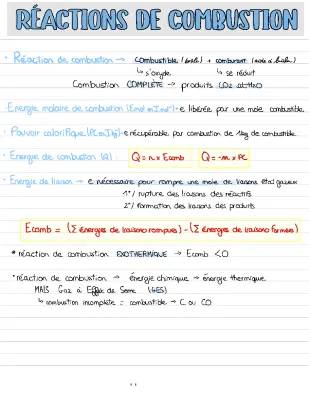 RÉACTIONS DE COMBUSTION
• Réaction de combustion → combustible + comburant
↳ s'oxyde ↳ se réduit
Combustion COMPLÈTE → produits CO2 et H2O
• Energie molaire de combustion → e libérée par une mole combustible.
• Pouvoir calorifique → e récupérable par combustion de 1kg de combustible
• Energie de combustion (Q) : Q = n x Ecomb Q = - m x PC
• Energie de liaison → e nécessaire pour rompre une mole de liaisons état gazeux
1°/ rupture des liaisons des réactifs
2°/ formation des liaisons des produits
Ecomb = (Σ énergies de liaisons rompues) - (Σ énergies de liaisons formées)
* réaction de combustion EXOTHERMIQUE → Ecomb < 0
• réaction de combustion → énergie chimique → énergie thermique
MAIS Gaz à Effet de Serre (GES)
↳ combustion incomplète = combustible → C ou CO